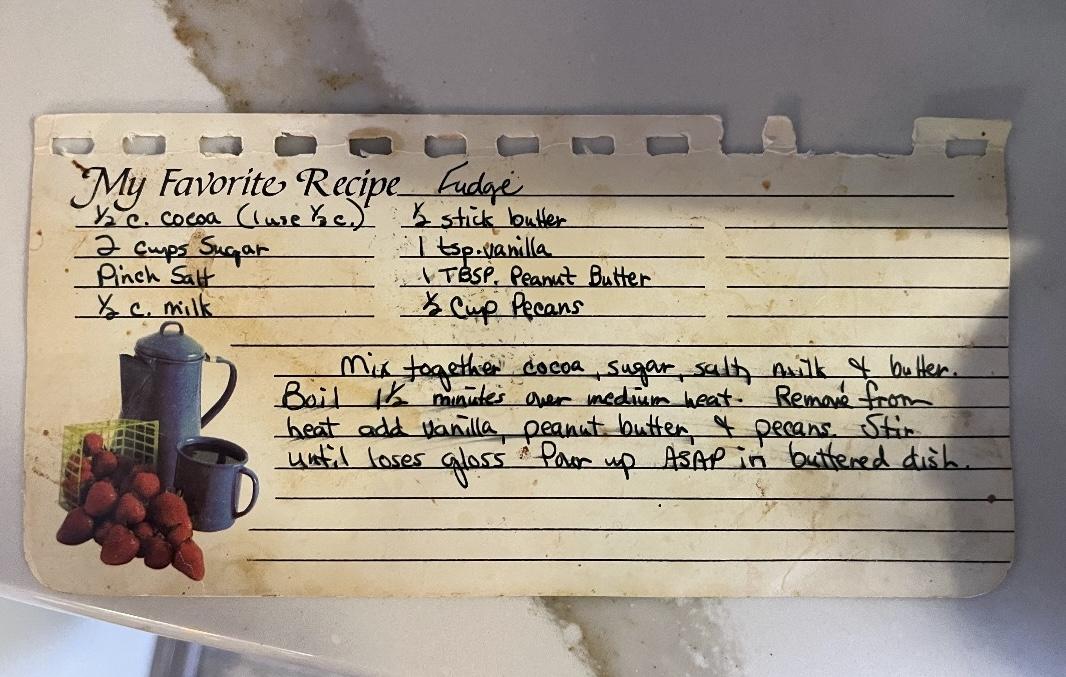 My Favorite Recipe Fudge
½ c. cocoa (I use ⅓ c.)
2 cups Sugar
Pinch Salt
½ c. milk
½ stick butter
1 tsp. vanilla
1 TBSP. Peanut Butter
½ Cup Pecans
Mix together cocoa, sugar, salt, milk & butter.
Boil 1½ minutes over medium heat. Remove from
heat add vanilla, peanut butter, & pecans. Stir
until loses gloss. Pour up ASAP in buttered dish.